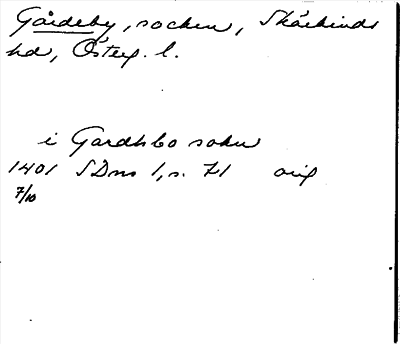 Gårdeby, socken, Skärkinds
hd, Österg. l.
i Gardhbo sokn
1401 SDns 1, s. 71 orig
7/10